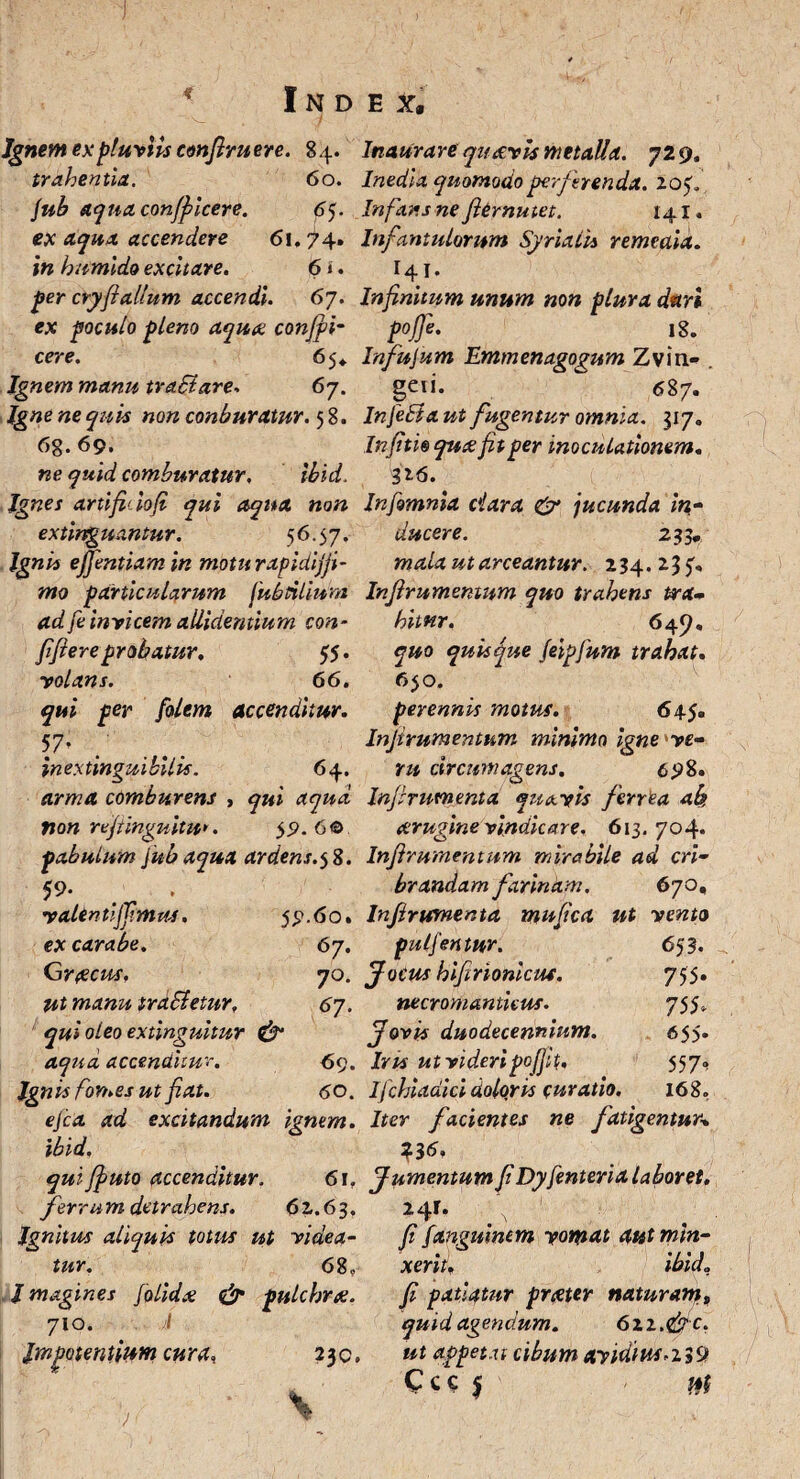 INDEX.
Ignem ex pluviis conſtruere. 84.
trahentia. 60.
ſub aqua conſpicere. 65.
ex aqua accendere 61.74.
in humido excitare. 61.
per cryſtallum accendi. 67.
ex poculo pleno aquæ conſpi-
cere. 65.
Ignem manu tractare. 67.
Igne ne quis non conburatur. 58.
68. 69.
ne quid comburatur. ibid.
Ignes artificioſi qui aqua non
extinguantur. 56.57.
Ignis eſſentiam in motu rapidiſſi-
mo particularum ſubtilium
ad ſe invicem allidentium con-
ſiſtere probatur. 55.
volans. 66.
qui per ſolem accenditur.
57.
inextinguibilis. 64.
arma comburens, qui aqua
non reſtinguitur. 59.60
pabulum ſub aqua ardens. 58.
59.
valentiſſimus. 59.60.
ex carabe. 67.
Græcus. 70.
ut manu tractetur. 67.
qui oleo extinguitur &
aqua accenditur. 69.
Ignis fomes ut fiat. 60.
eſca ad excitandum ignem.
ibid.
qui ſputo accenditur. 61.
ferrum detrahens. 62.63.
Ignitus aliquis totus ut videa-
tur. 68.
Imagines ſolidæ & pulchræ.
710.
Impotentium cura. 230.
Inaurare quævis metalla. 729.
Inedia quomodo perferenda. 205.
Infans ne ſternutet. 141.
Infantulorum Syriaſis remedia.
141.
Infinitum unum non plura dari
poſſe. 18.
Infuſum Emmenagogum Zvin-
geri. 687.
Inſecta ut fugentur omnia. 317.
Inſitio quæ fit per inoculationem.
326.
Inſomnia clara & jucunda in-
ducere. 233.
mala ut arceantur. 234.235.
Inſtrumentum quo trahens tra-
hitur. 649.
quo quisque ſeipſum trahat.
650.
perennis motus. 645.
Inſtrumentum minimo igne ve-
ru circumagens. 698.
Inſtrumenta quævis ferrea ab
ærugine vindicare. 613. 704.
Inſtrumentum mirabile ad cri-
brandam farinam. 670.
Inſtrumenta muſica ut vento
pulſentur. 653.
Jocus hiſtrionicus. 755.
necromanticus. 755.
Jovis duodecennium. 655.
Iris ut videri poſſit. 557.
Iſchiadici doloris curatio. 168.
Iter facientes ne fatigentur.
336.
Jumentum ſi Dyſenteria laboret.
241.
ſi ſanguinem vomat aut min-
xerit. ibid.
ſi patiatur præter naturam,
quid agendum. 622.&c.
ut appetat cibum avidius. 239
Ccc 5 ut